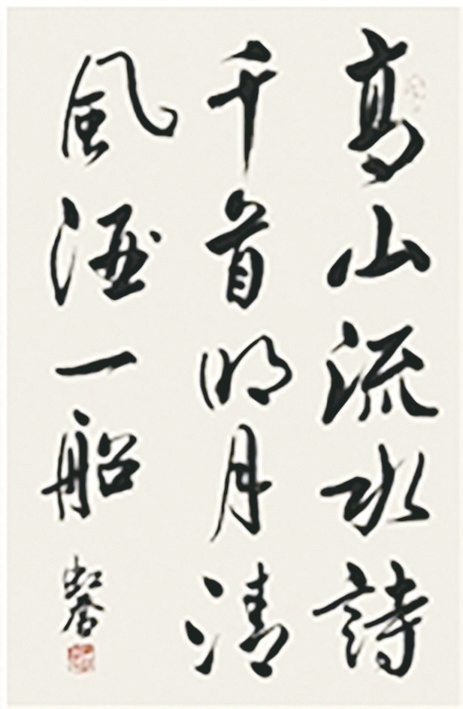 高山流水詩
千首明月清
風酒一船